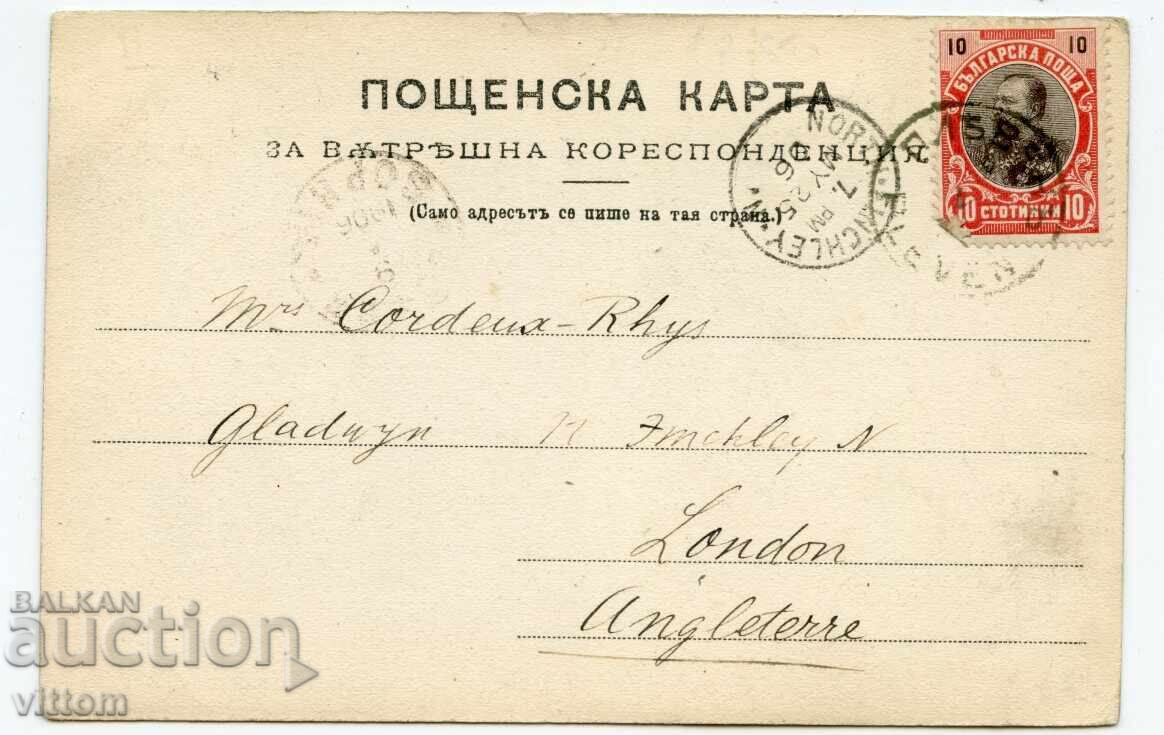 10 10
БЪЛГАРСКА ПОЩА
10 СТОТИНКИ 10
ПОЩЕНСКА КАРТА
ЗА ВѪТРѢШНА КОРЕСПОНДЕНЦИЯ.
(Само адресътъ се пише на тая страна.)
NORTH FINCHLEY. N.
7. PM
MY 25
06
Mrs Cordeux-Rhys
Gladwyn N Finchley N
London
Angleterre
BALKAN
auction
vittom